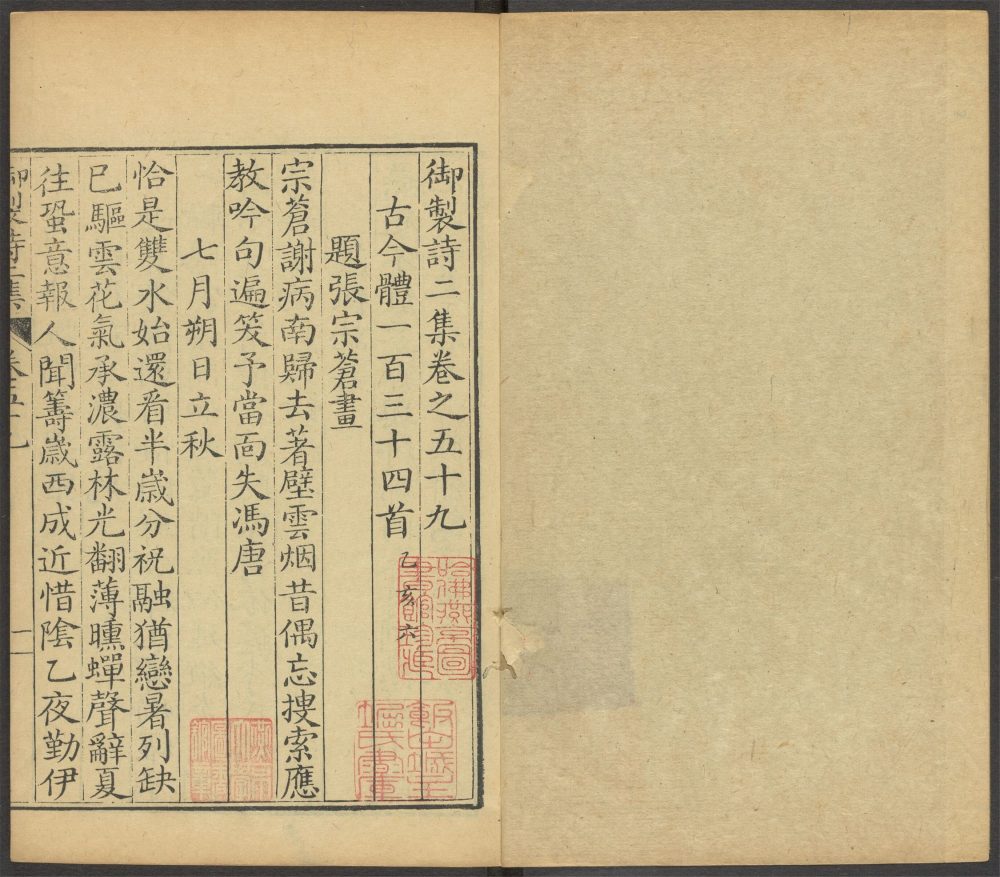 御製詩二集卷之五十九
古今體一百三十四首 乙亥六
題張宗蒼畫
宗蒼謝病南歸去著壁雲烟昔偶忘搜索應
教吟句遍笑予當面失馮唐
七月朔日立秋
恰是雙水始還看半歲分祝融猶戀暑列缺
已驅雲花氣承濃露林光翻薄曛蟬聲辭夏
往蛩意報人聞籌歲西成近惜陰乙夜勤伊
御製詩二集 卷五十九 一
哈佛燕京圖書館珍藏